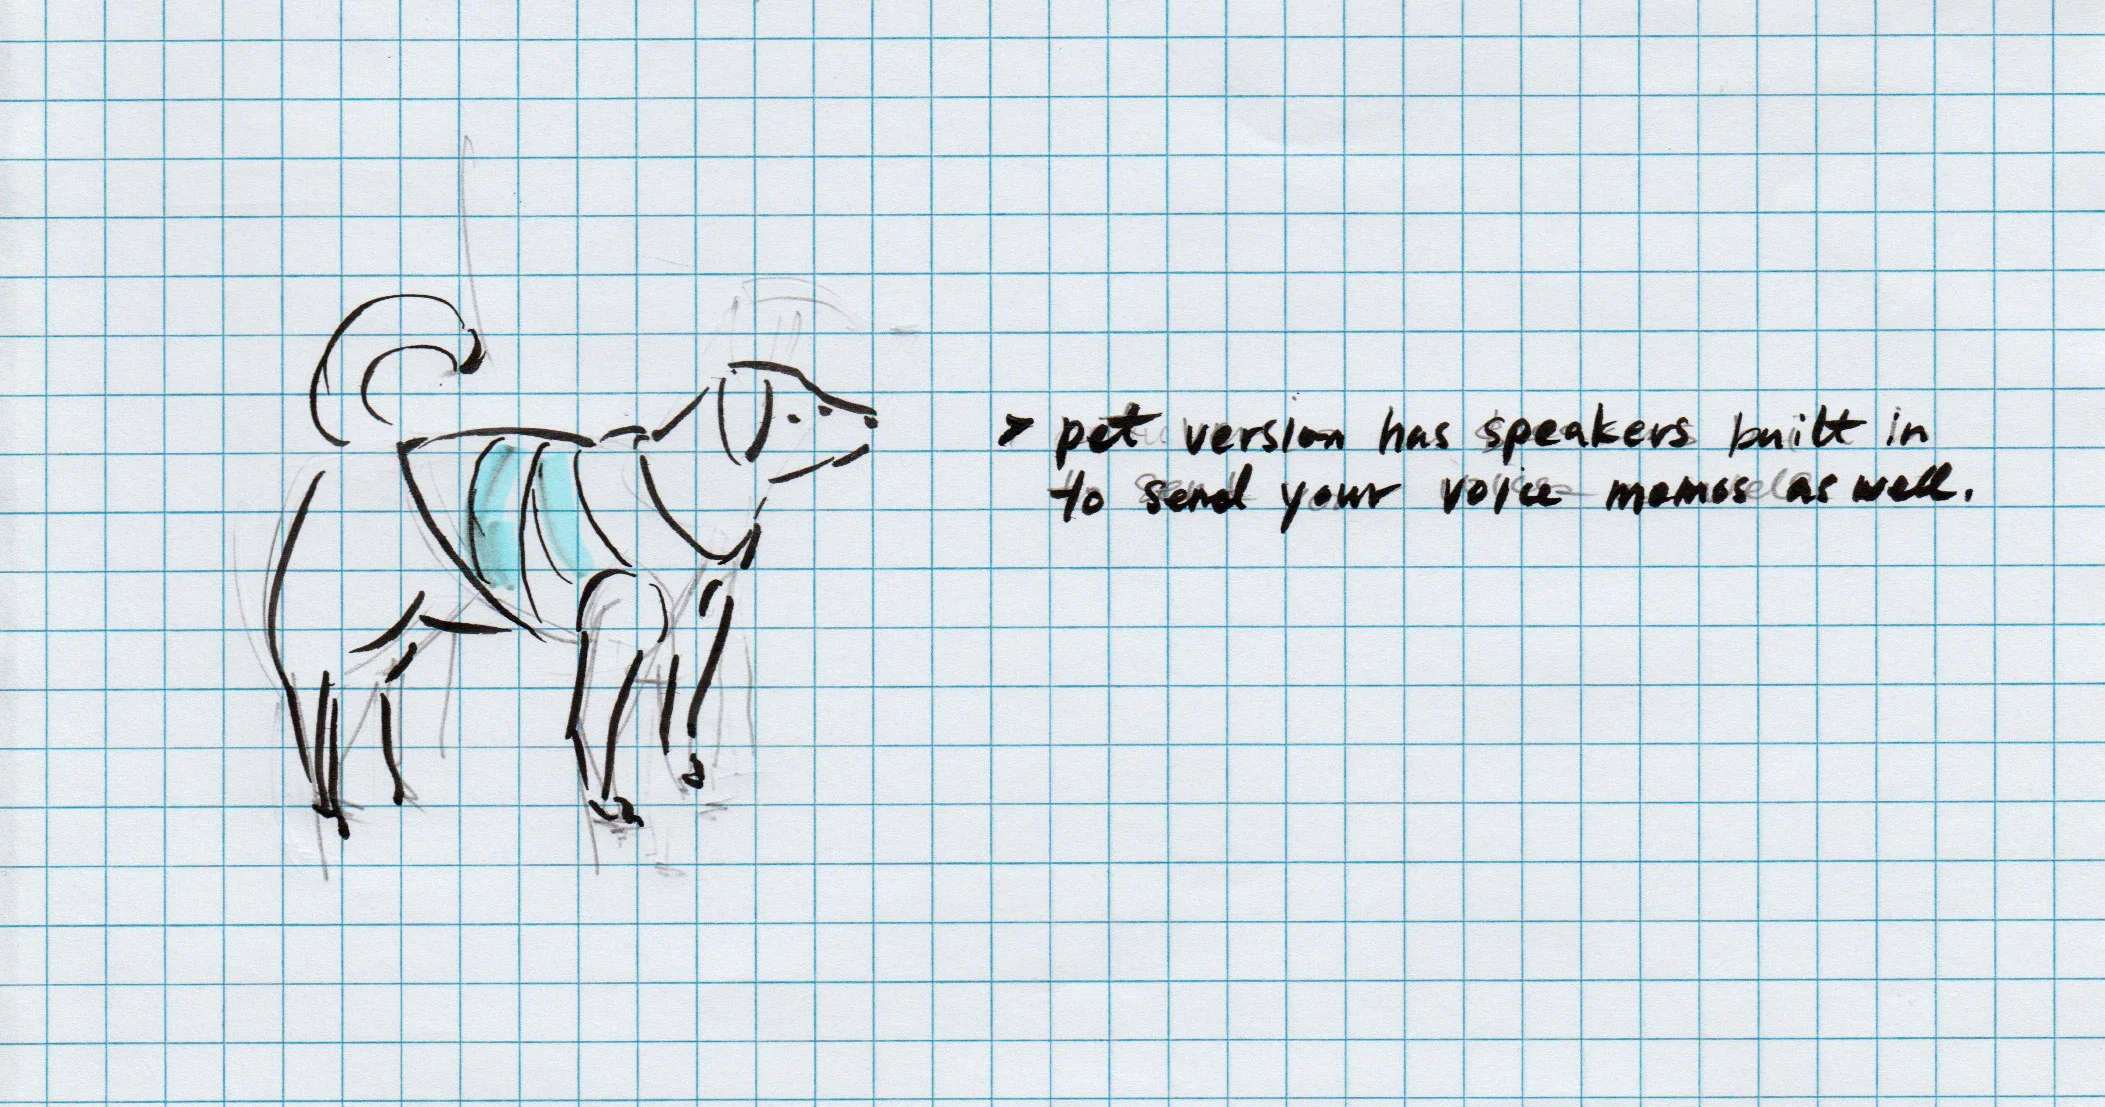 > pet version has speakers built in
to send your voice memos as well.